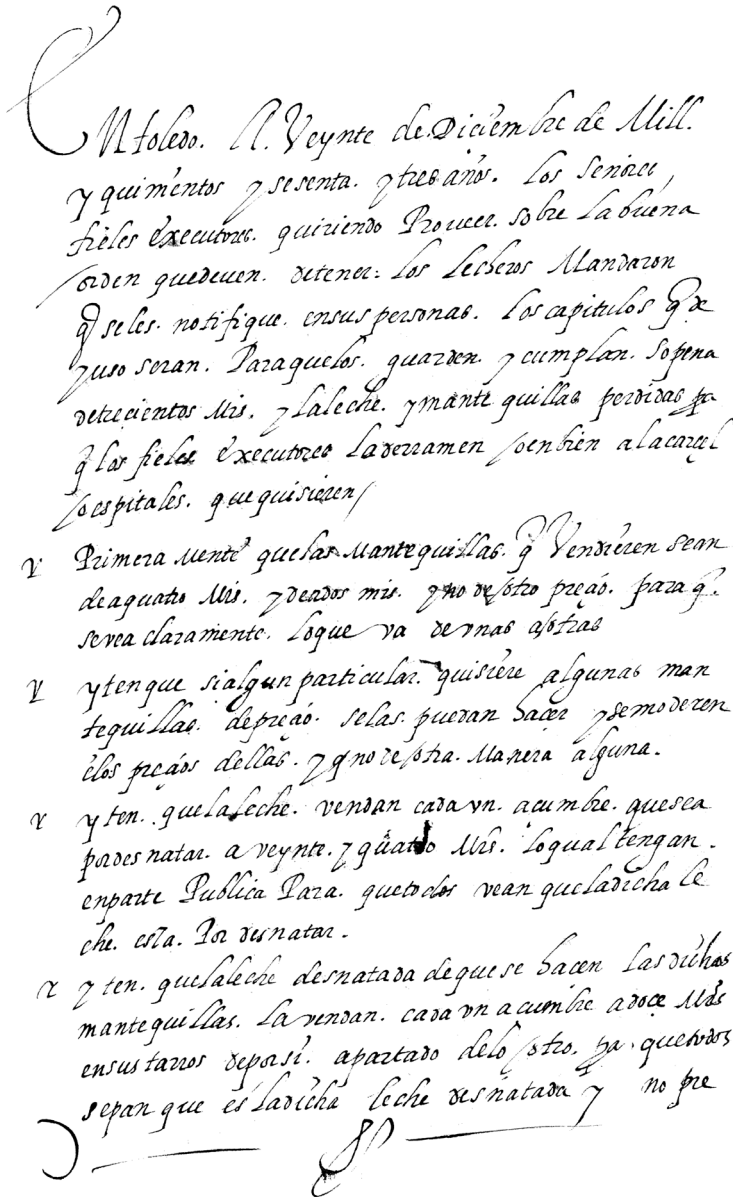 En toledo. A. Veynte de Diciembre de Mill.
y quinientos y sesenta. y tres años. los señores
fieles executores. quiriendo Proveer. sobre la buena
orden que deven. de tener: los lecheros Mandaron
q̄ seles. notifique. en sus personas. los capitulos q̄ de
yuso seran. Para que los. guarden. y cumplan. so pena
de trecientos Mrs. y la leche. y mantequillas perdidas pa
q̄ los fieles executores la derramen o enbien a la carçel
o espitales. que quisieren/
V Primera mente que las Mantequillas. q̄ Vendieren sean
de a quatro Mrs. y de a dos mrs. y no de otro preçio. para q̄.
se vea claramente. lo que va de vnas a otras
V yten que si algun particular. quisiere algunas man
tequillas. de preçio. se las. puedan hacer y se moderen
elos preçios dellas. y q̄ no de otra. Manera alguna.
V yten. que la leche. vendan cada vn. acumbre. que sea
por desnatar. a veynte. y quatro Mrs. lo qual tengan.
en parte Publica Para. que todos vean que la dicha le
che. esta. Por desnatar.
V yten. que la leche desnatada de que se hacen las dichas
mantequillas. la vendan. cada vn acumbre a doce Mrs
en sus tarros de por si. apartado de lo otro. pa. que todos
sepan que es la dicha leche desnatada y no pre